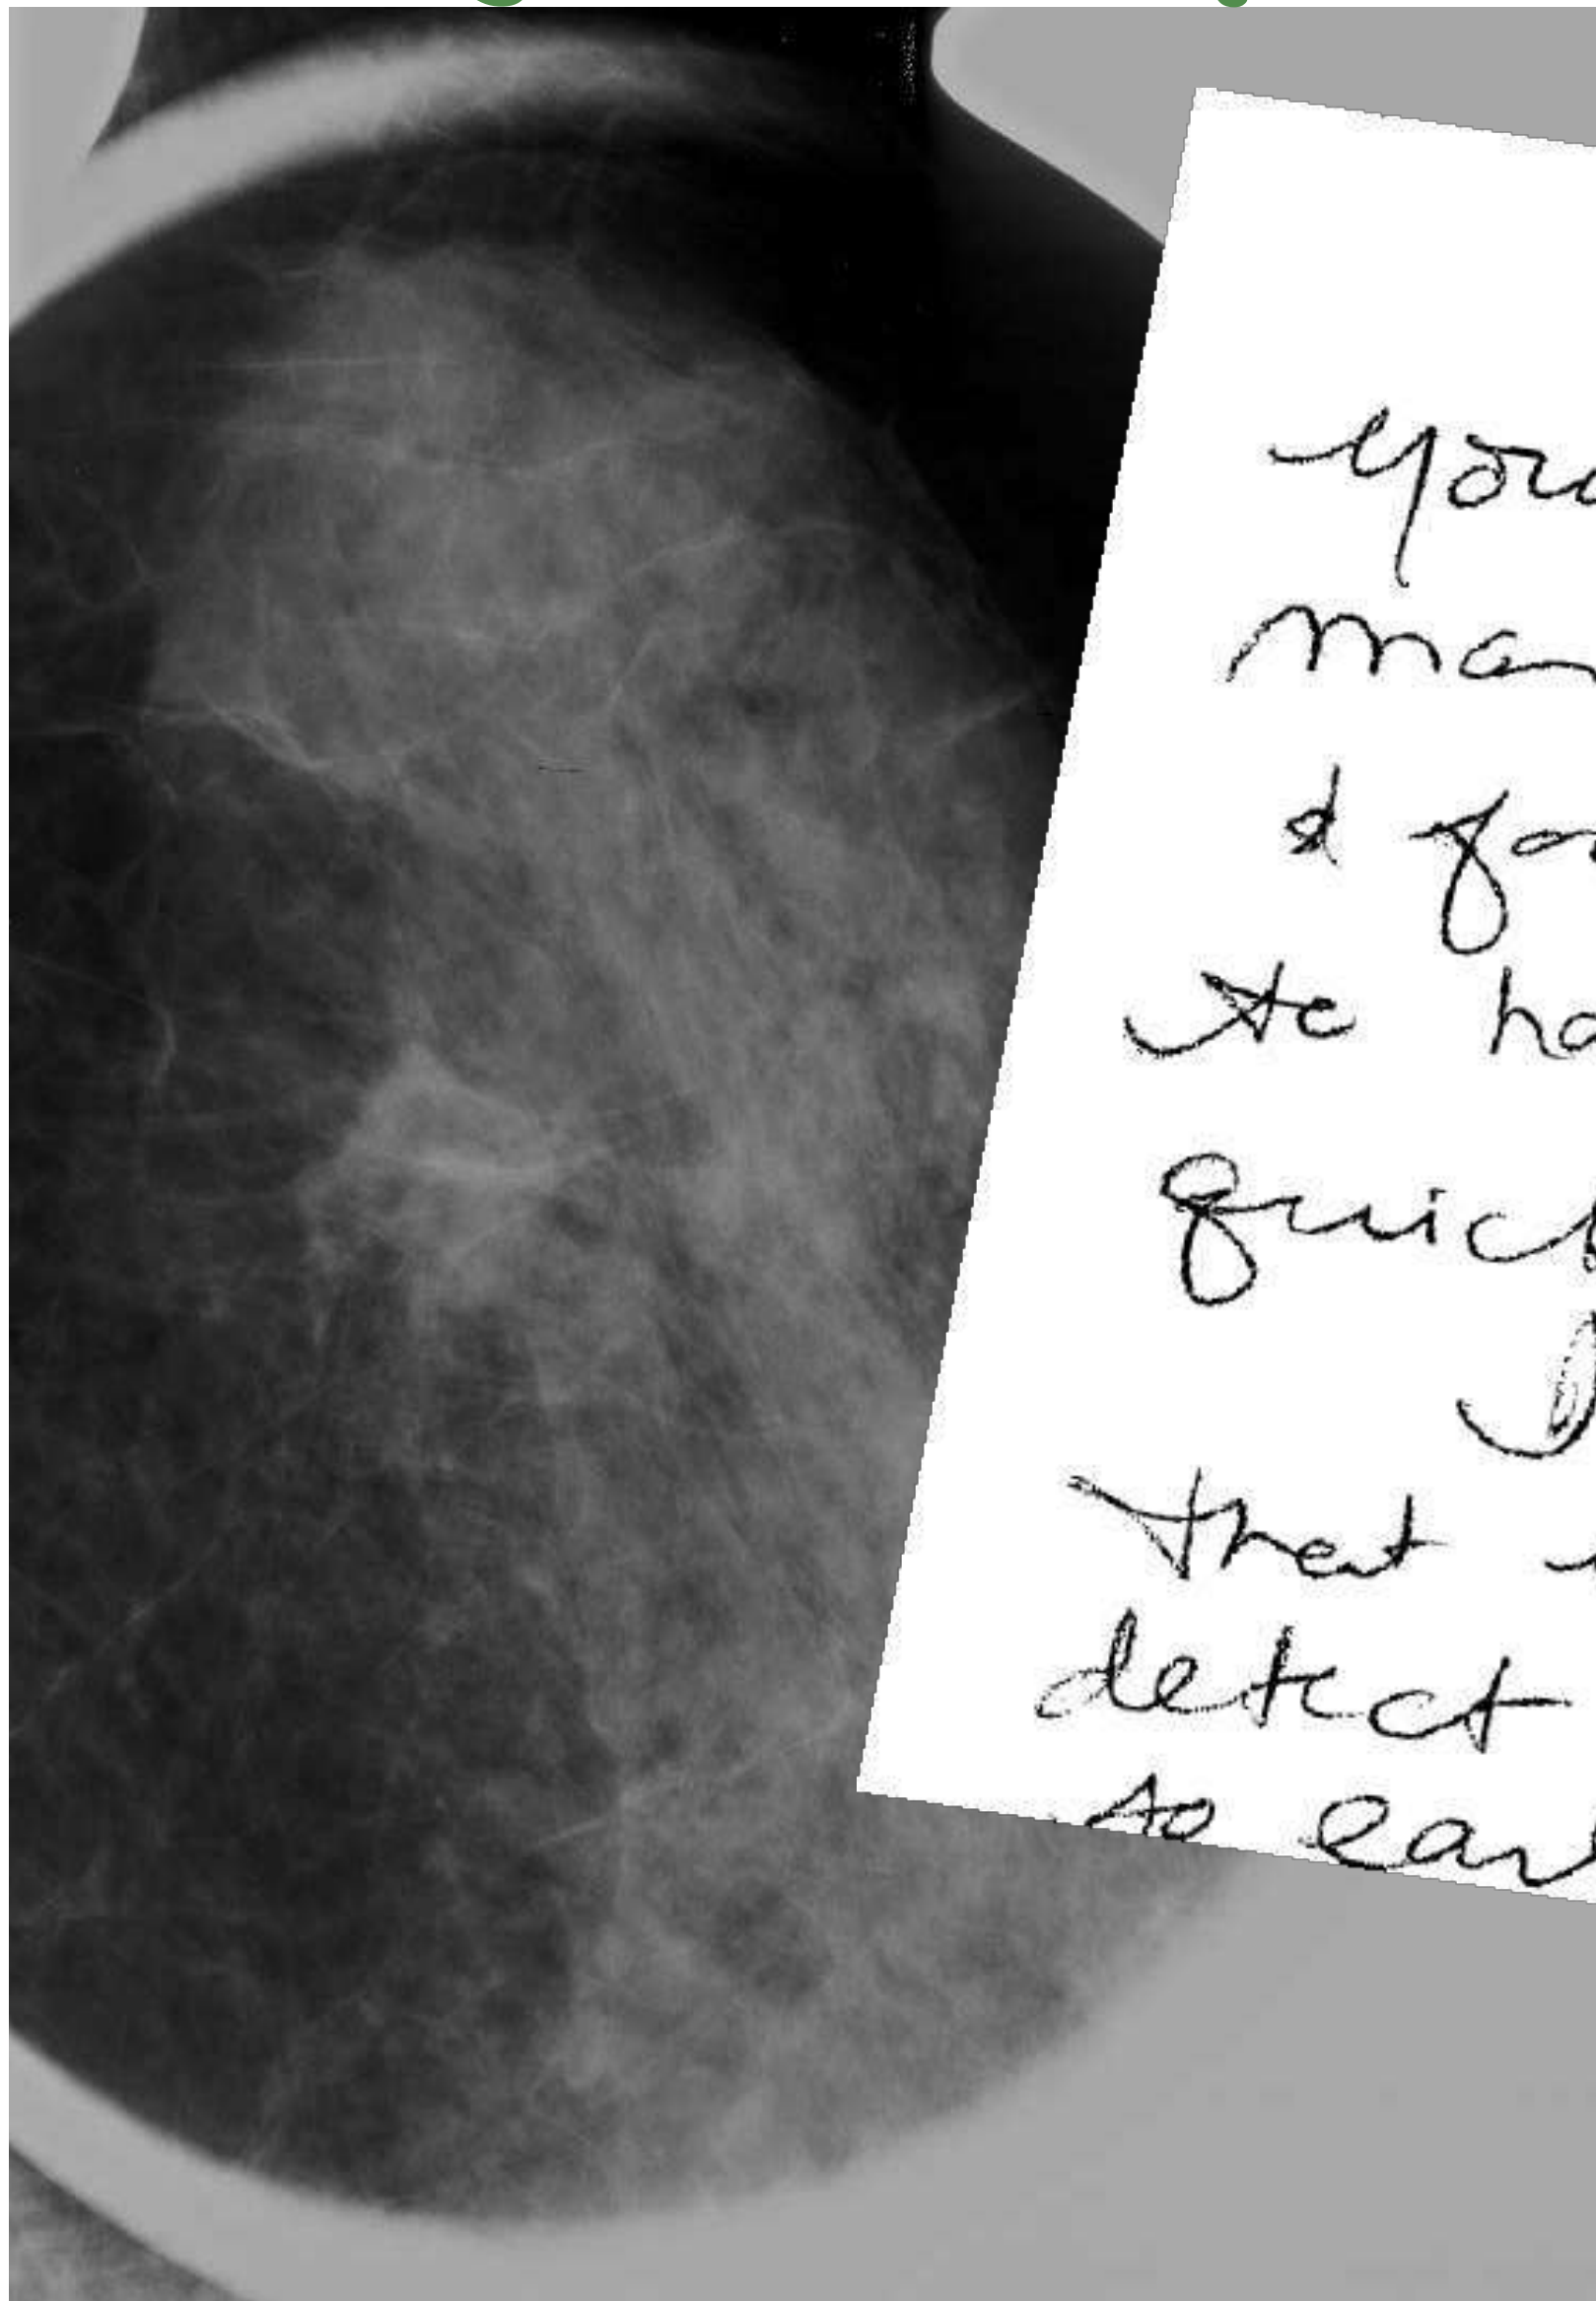 you
man
& for
to ha
quick
that
detect
so ear